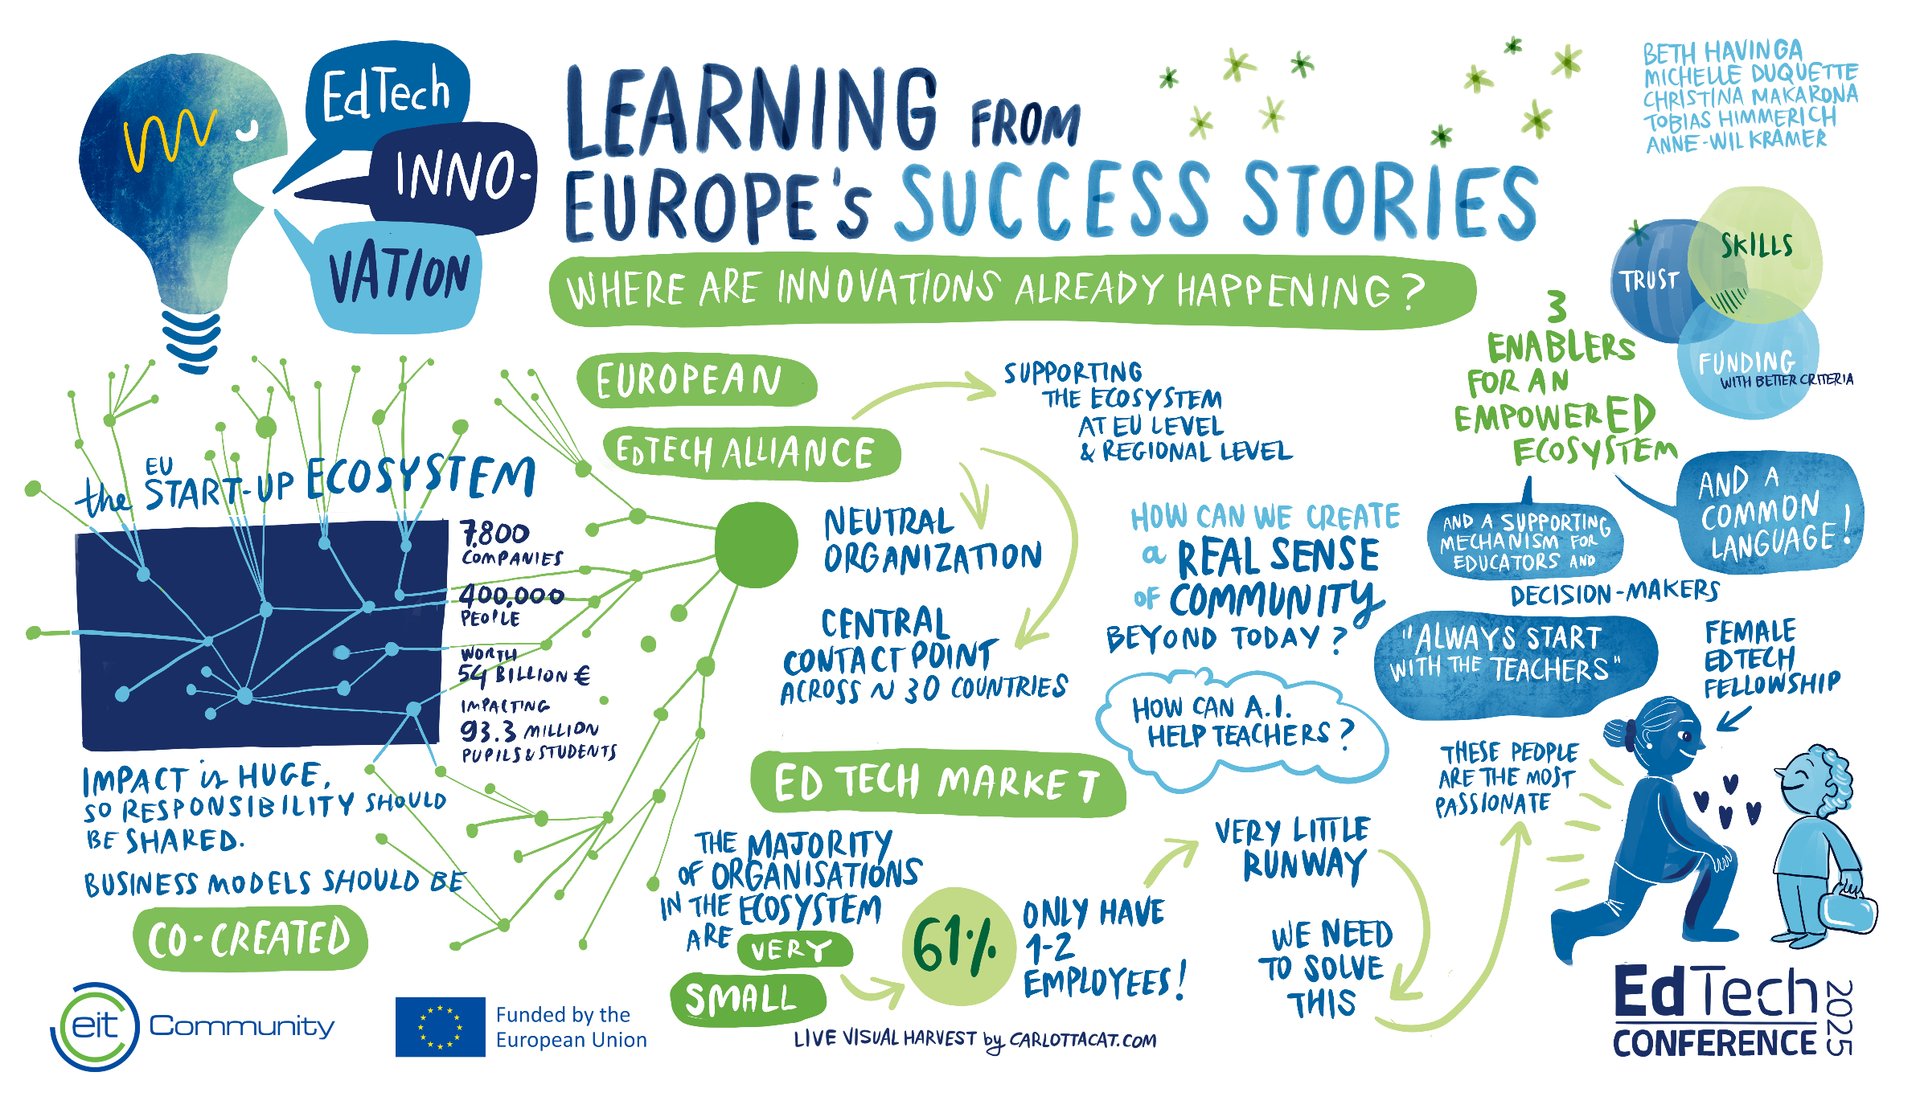 EdTech
INNO-
VATION
LEARNING FROM
EUROPE'S SUCCESS STORIES
WHERE ARE INNOVATIONS ALREADY HAPPENING?
BETH HAVINGA
MICHELLE DUQUETTE
CHRISTINA MAKARONA
TOBIAS HIMMERICH
ANNE-WIL KRAMER
TRUST
SKILLS
FUNDING
WITH BETTER CRITERIA
3
ENABLERS
FOR AN
EMPOWERED
ECOSYSTEM
AND A SUPPORTING
MECHANISM FOR
EDUCATORS AND
DECISION-MAKERS
AND A
COMMON
LANGUAGE!
the EU
START-UP ECOSYSTEM
7.800
COMPANIES
400.000
PEOPLE
WORTH
54 BILLION €
IMPACTING
93.3 MILLION
PUPILS & STUDENTS
IMPACT is HUGE,
SO RESPONSIBILITY SHOULD
BE SHARED.
BUSINESS MODELS SHOULD BE
CO-CREATED
EUROPEAN
EDTECH ALLIANCE
SUPPORTING
THE ECOSYSTEM
AT EU LEVEL
& REGIONAL LEVEL
NEUTRAL
ORGANIZATION
CENTRAL
CONTACT POINT
ACROSS ~ 30 COUNTRIES
HOW CAN WE CREATE
a REAL SENSE
OF COMMUNITY
BEYOND TODAY?
HOW CAN A.I.
HELP TEACHERS?
"ALWAYS START
WITH THE TEACHERS"
FEMALE
EDTECH
FELLOWSHIP
THESE PEOPLE
ARE THE MOST
PASSIONATE
ED TECH MARKET
THE MAJORITY
OF ORGANISATIONS
IN THE ECOSYSTEM
ARE VERY
SMALL
61%
ONLY HAVE
1-2
EMPLOYEES!
VERY LITTLE
RUNWAY
WE NEED
TO SOLVE
THIS
eit Community
Funded by the
European Union
LIVE VISUAL HARVEST by CARLOTTACAT.COM
EdTech
CONFERENCE
2025